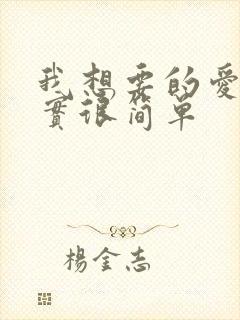 我想要的愛
實很简单
楊金志